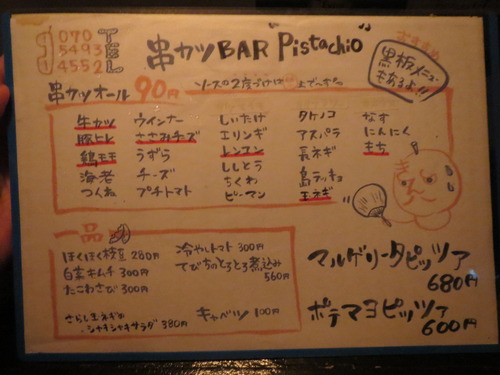 070
5493
4552
TEL
串カツBAR Pistachio
串カツオール 90円
ソースの2度づけは
黒板メニュー
もあるよ!!
牛カツ ウインナー しいたけ タケノコ なす
豚ヒレ ささみチーズ エリンギ アスパラ にんにく
鶏モモ うずら レンコン 長ネギ もち
海老 チーズ ししとう 島ラッキョ
つんね プチトマト ちくわ 玉ネギ
ピーマン
一品
ほくほく枝豆 280円
白菜キムチ 300円
たこわさび 300円
さらし玉ネギの
シャキシャキサラダ 380円
冷やしトマト 300円
てびちのとろとろ煮込み
560円
キャベツ 100円
マルゲリータピッツァ
680円
ポテマヨピッツァ
600円